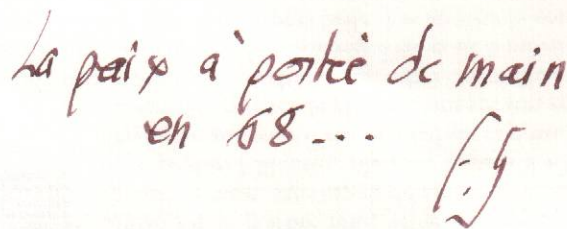 La paix à portée de main
en 68...